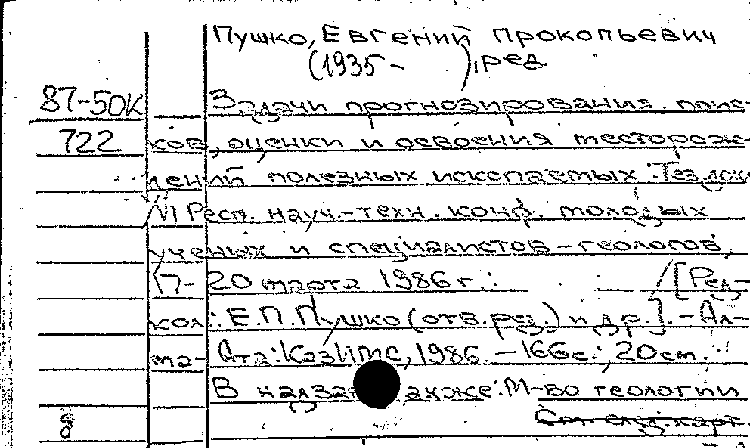 Пушко, Евгений Прокопьевич
(1935- ), ред
87-50К Задачи прогнозирования, поис-
722 ков, оценки и освоения месторож-
дений полезных ископаемых: Тез. докл.
VI Респ. науч.-техн. конф. молодых
ученых и специалистов-геологов,
17-20 марта 1986 г.: /[Ред-
кол.: Е.П. Пушко (отв. ред.) и др.].-Ал-
ма-Ата: КазИМС, 1986.-166 с.; 20 см.
В надзаг. также: М-во геологии